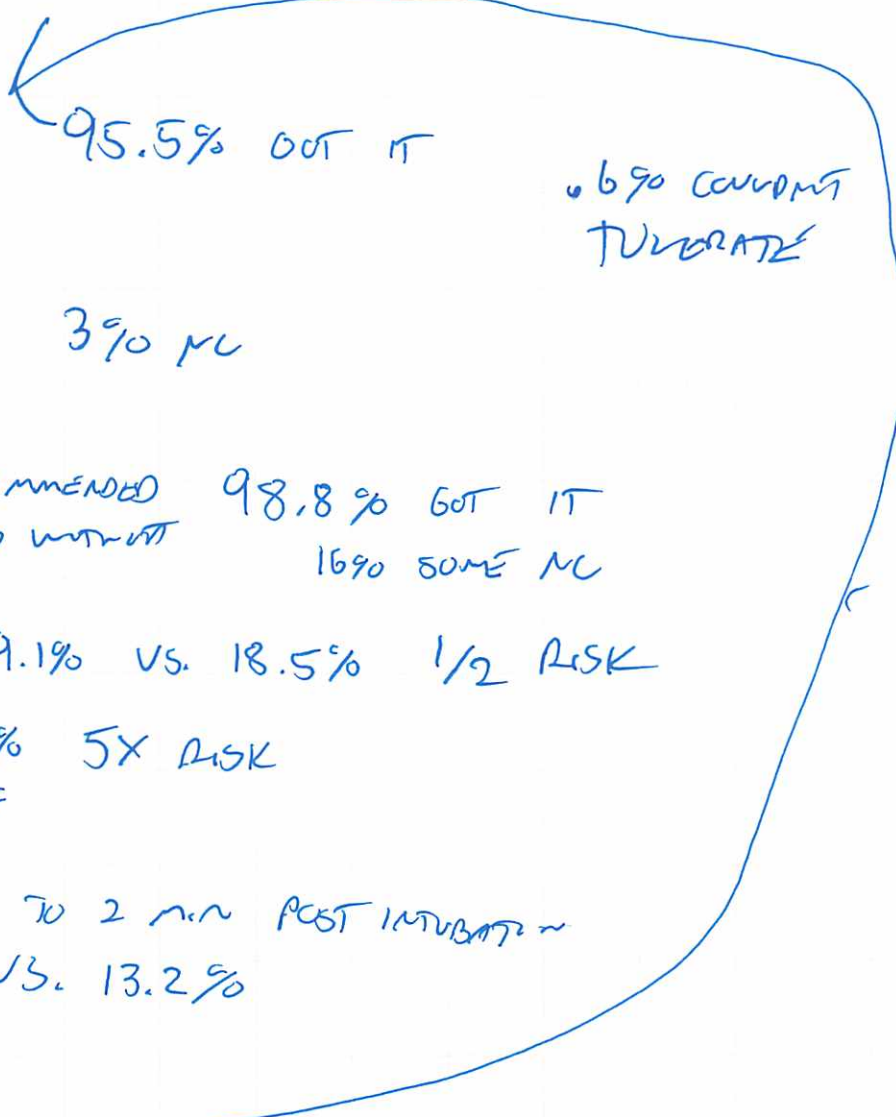 95.5% GOT IT
.6% COULDN'T
TOLERATE
3% NC
MMENDED 98.8% GOT IT
WITHOUT 16% SOME NC
9.1% VS. 18.5% 1/2 RISK
% 5X RISK
TO 2 MIN POST INTUBATION
VS. 13.2%